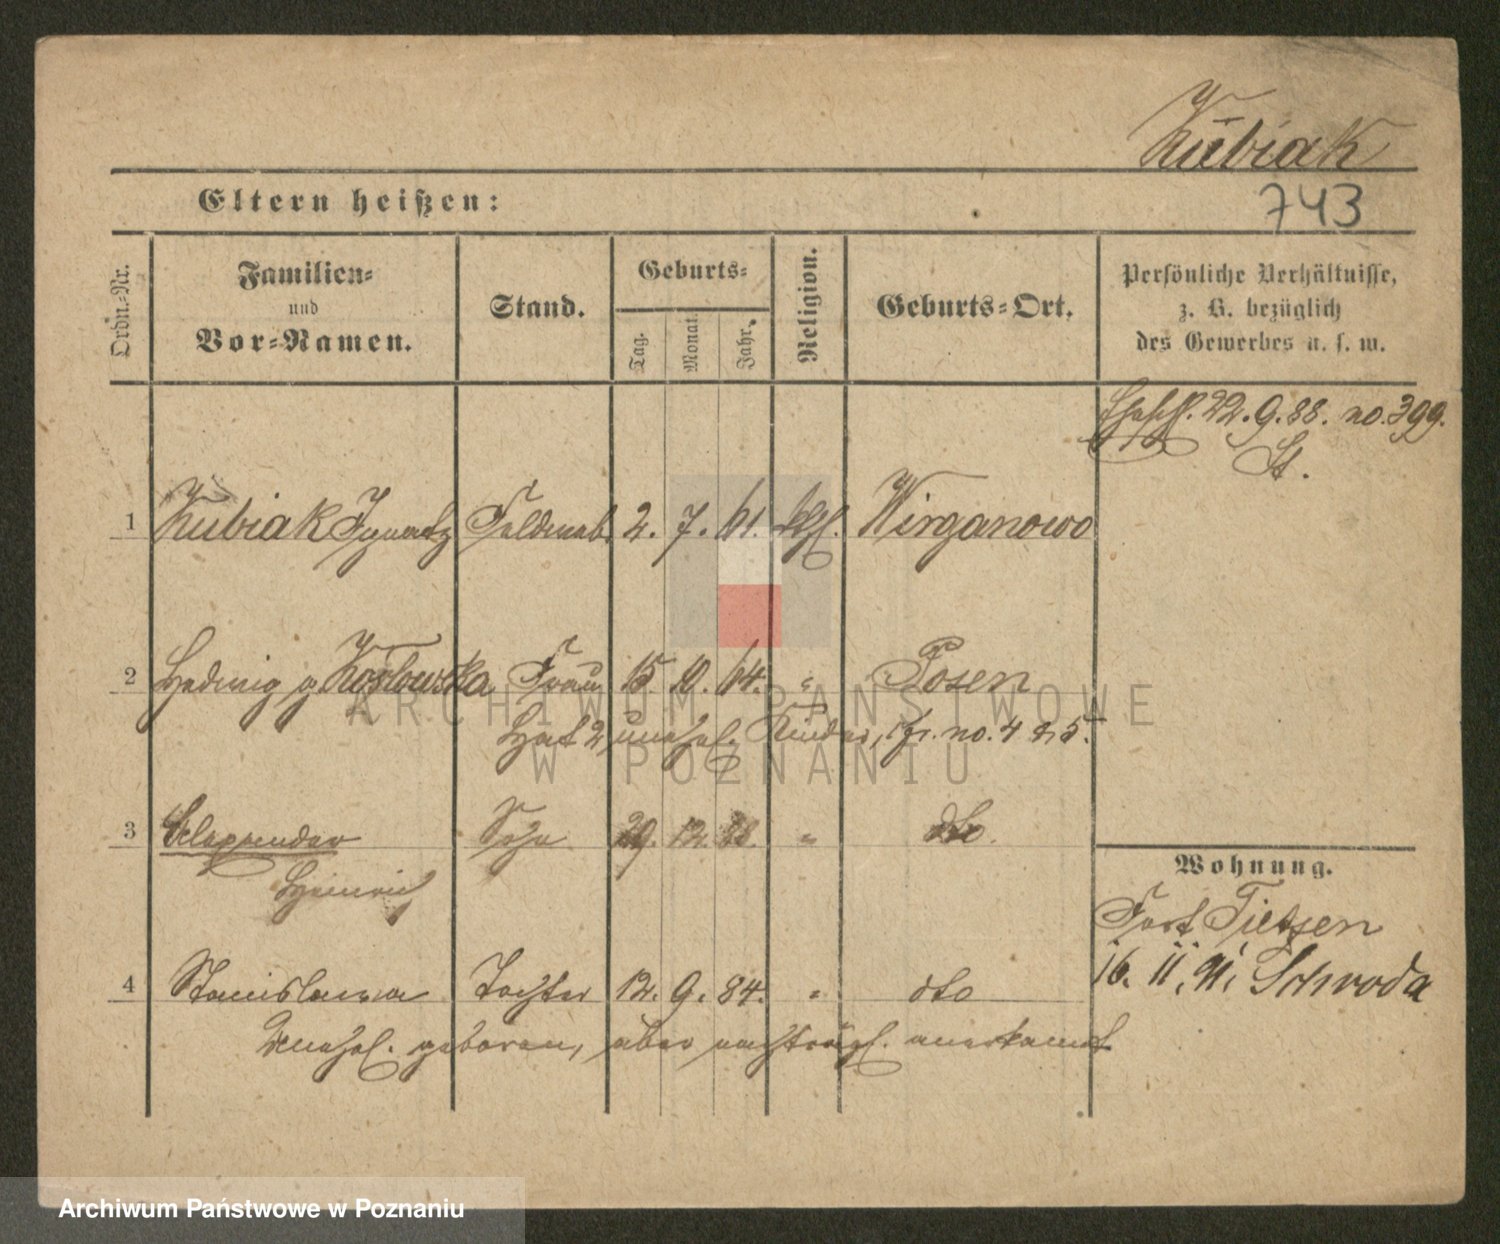 Kubiak
743
Eltern heißen:
Ordn.-Nr.
Familien-
und
Vor-Namen.
Stand.
Geburts-
Tag.
Monat.
Jahr.
Religion.
Geburts-Ort.
Persönliche Verhältnisse,
z. B. bezüglich
des Gewerbes u. s. w.
22.9.88. no.399.
St.
1 Kubiak Ignatz Feldweb. 2. 7. 61. kth. Wirganowo
2 Hedwig g Koslowska Frau 15. 10. 64. " Posen
Hat 2 unehel. Kinder, fr. no. 4 & 5.
3 Alexander Sohn 29. 12. 88. " dto.
Heinrich
Wohnung.
Fort Tietzen
16. 11. 91. Schroda
4 Stanislawa Tochter 12. 9. 84. " dto
Unehel. geboren, aber nachträgl. anerkannt
ARCHIWUM PAŃSTWOWE
W POZNANIU
Archiwum Państwowe w Poznaniu